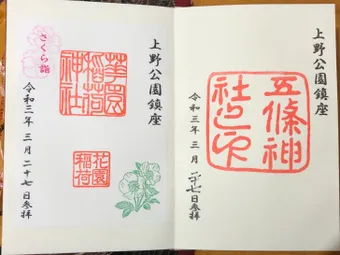 上野公園鎮座
五條神
社之印
令和三年三月二十七日参拝
上野公園鎮座
稲荷
神社
花園
稲荷
さくら詣
令和三年三月二十七日参拝